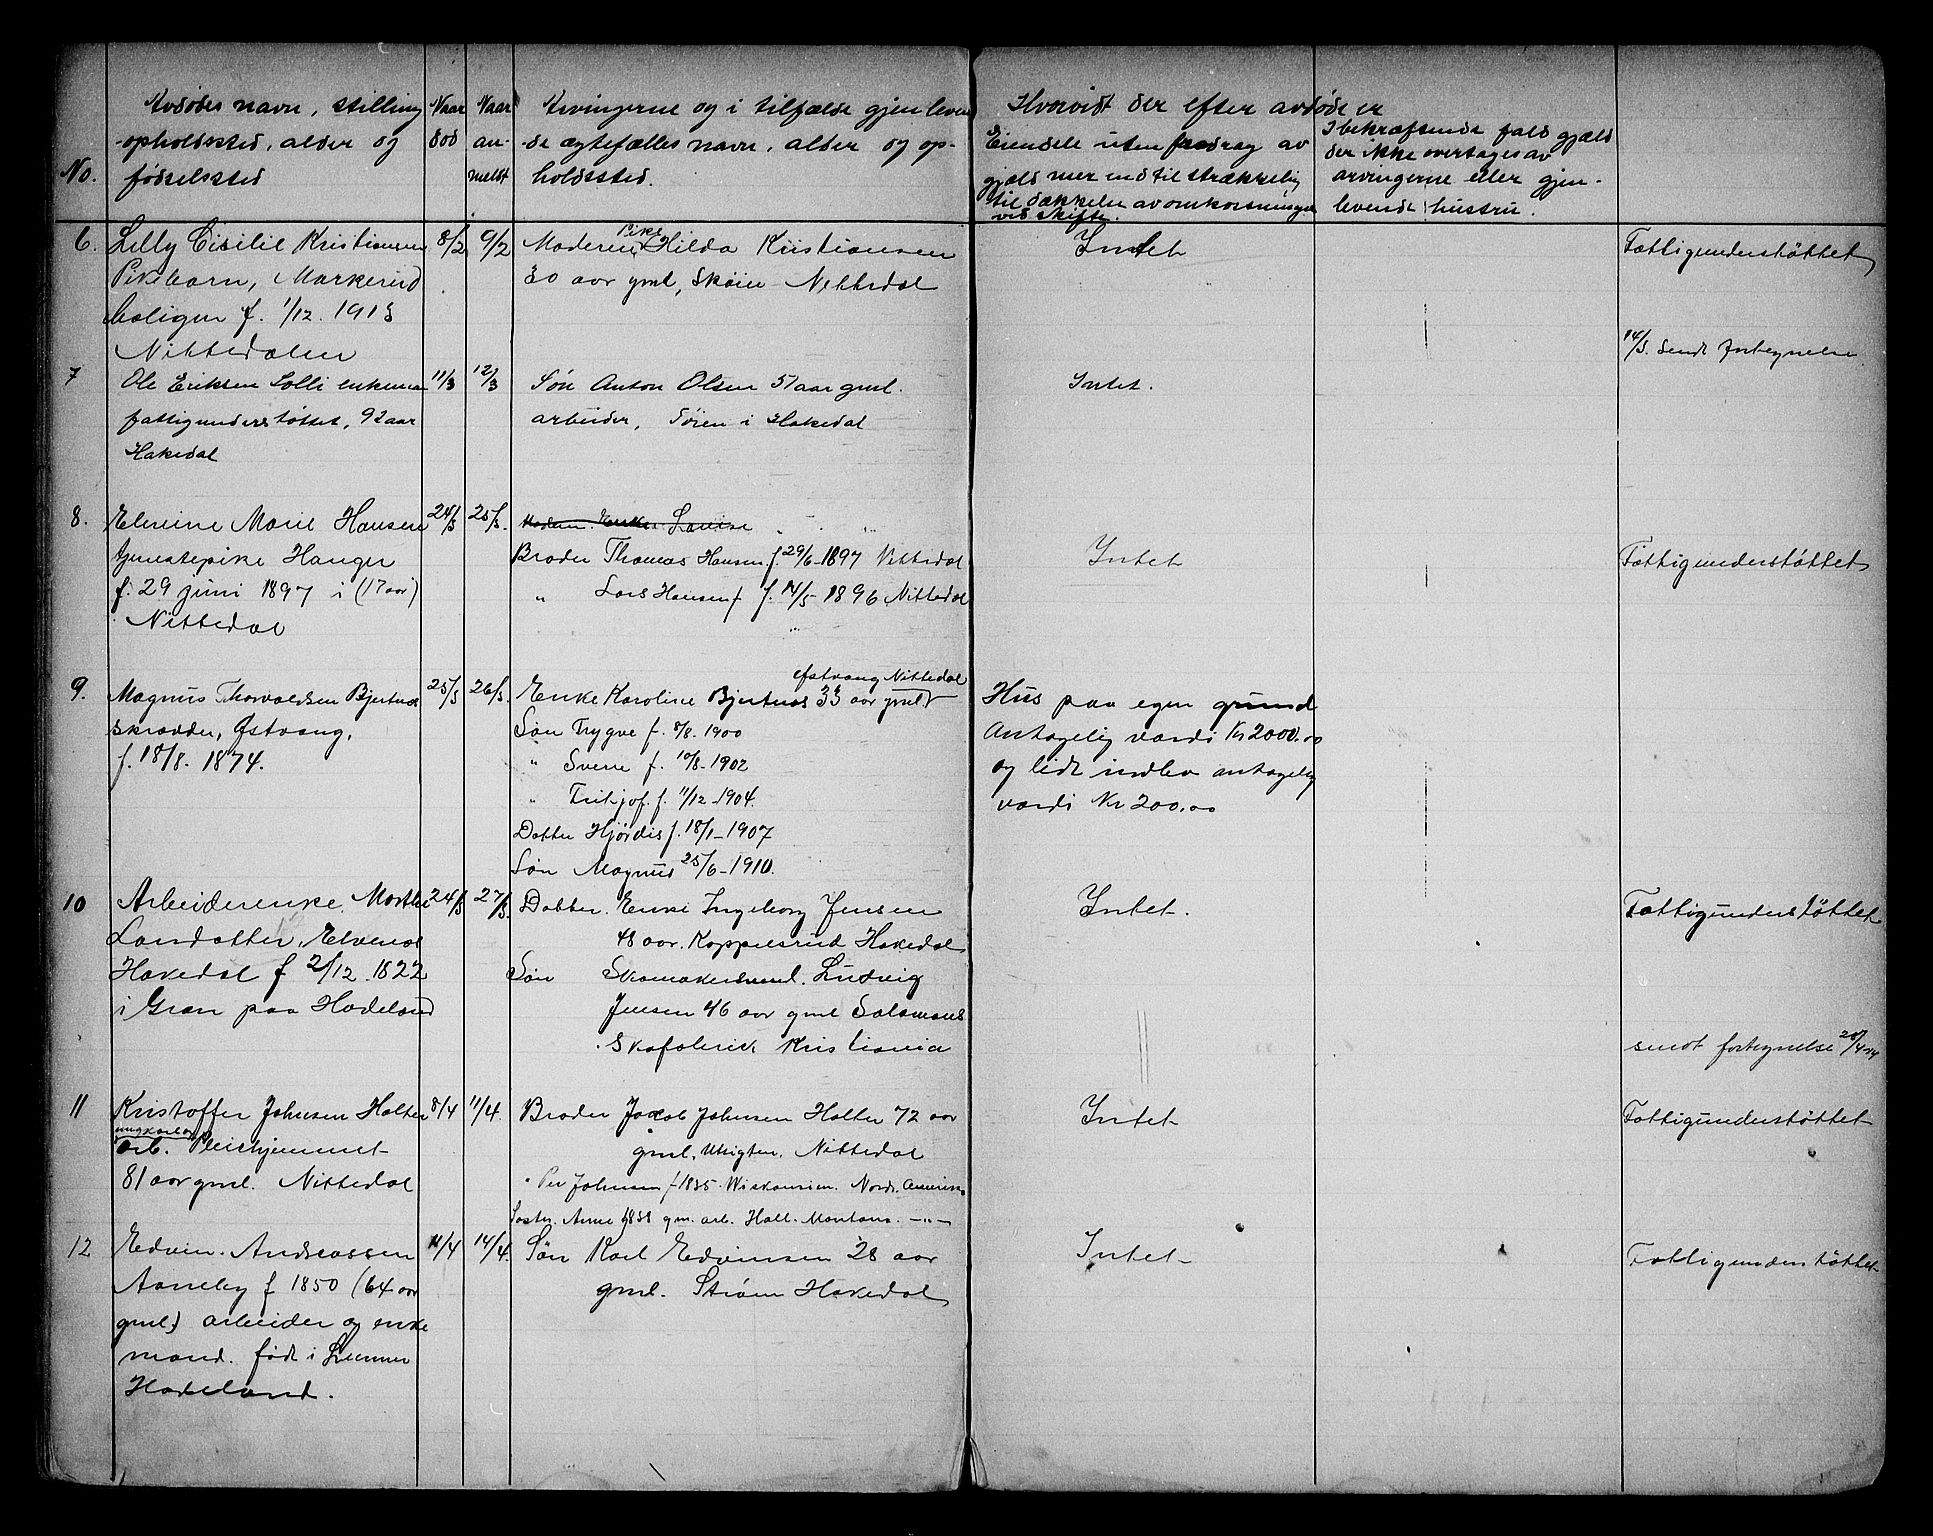 No.
Avdødes navn, stilling
opholdssted, alder og
fødselssted
Naar
død
Naar
an-
meldt
Arvingerne og i tilfælde gjenleven
de ægtefælles navn, alder og op-
holdssted.
Hvorvidt der efter avdøde er
Eiendele uten fradrag av
gjæld mer end tilstrækkelig
til dækkelse av omkostninger
ved skifte.
I bekræftende fald gjæld
der ikke overtages av
arvingerne eller gjen-
levende hustru.
6. Lilly Cisilie Kristiansen 8/2 9/2 Moderen Pike Hilda Kristiansen Intet Fattigunderstøttet
Pikebarn, Markerud 30 aar gml, Skøien Nittedal
boligen f. 1/12. 1913
Nittedalen 14/3. Sendt fortegnelse
7 Ole Eriksen Solli enkeman 11/3 12/3 Søn Anton Olsen 51 aar gml. Intet.
fattigunderstøttet, 92 aar arbeider, Søren i Hakedal
Hakedal
8. Marie Hansen 24/3 25/3. Moderen Enke Lovise
tjenestepike Hauger Broder Thomas Hansen f. 29/6-1897 Nittedal Intet Fattigunderstøttet
f. 29 juni 1897 i (17 aar) " Lars Hansen f. 14/5 1896 Nittedal
Nittedal
Østvang Nittedal
9. Magnus Thorvaldsen Bjertnes 25/3 26/3. Enke Karoline Bjertnes 33 aar gml Hus paa egen grund
skrædder, Østvang, Søn Trygve f. 8/8. 1900 Antagelig værdi Kr 2000.00
f. 18/8. 1874. " Sverre f. 10/8-1902 og lidt indbo antagelig
" Fritjof. f. 11/12-1904. værdi Kr 200.00
Datter Hjørdis f. 18/1-1907
Søn Magnus 25/6-1910.
10 Arbeiderenke, Marthe 24/3 27/3. Datter. Enke Ingeborg Jensen Intet. Fattigunderstøttet
Larsdatter, Elvenes 48 aar. Koppelsrud Hakedal
Hakedal f 2/12. 1822 Søn Skomakersvend. Ludvig
i Gran paa Hadeland Jensen 46 aar gml Salamons
Skofabrik Kristiania sendt fortegnelse 20/4-14
11 Kristoffer Johnsen Holter 8/4 11/4. Broder Jacob Johnsen Holter 72 aar Intet Fattigunderstøttet
ungkarl og
arb. Pleiehjemmet gml, Utsigten, Nittedal
81 aar gml. Nittedal " Per Johnsen f 1835. Wiskonsien. Nord. Amerika
Søster. Anne 1838 gm. arb. Hall. Montana. -"-
12 Edvin. Andreassen 11/4 14/4. Søn Karl Edvinsen 28 aar Intet Fattigunderstøttet
Aaneby f 1850 (64 aar gml. Strøm Hakedal
gml) arbeider og enke
mand. født i Lunner
Hadeland.